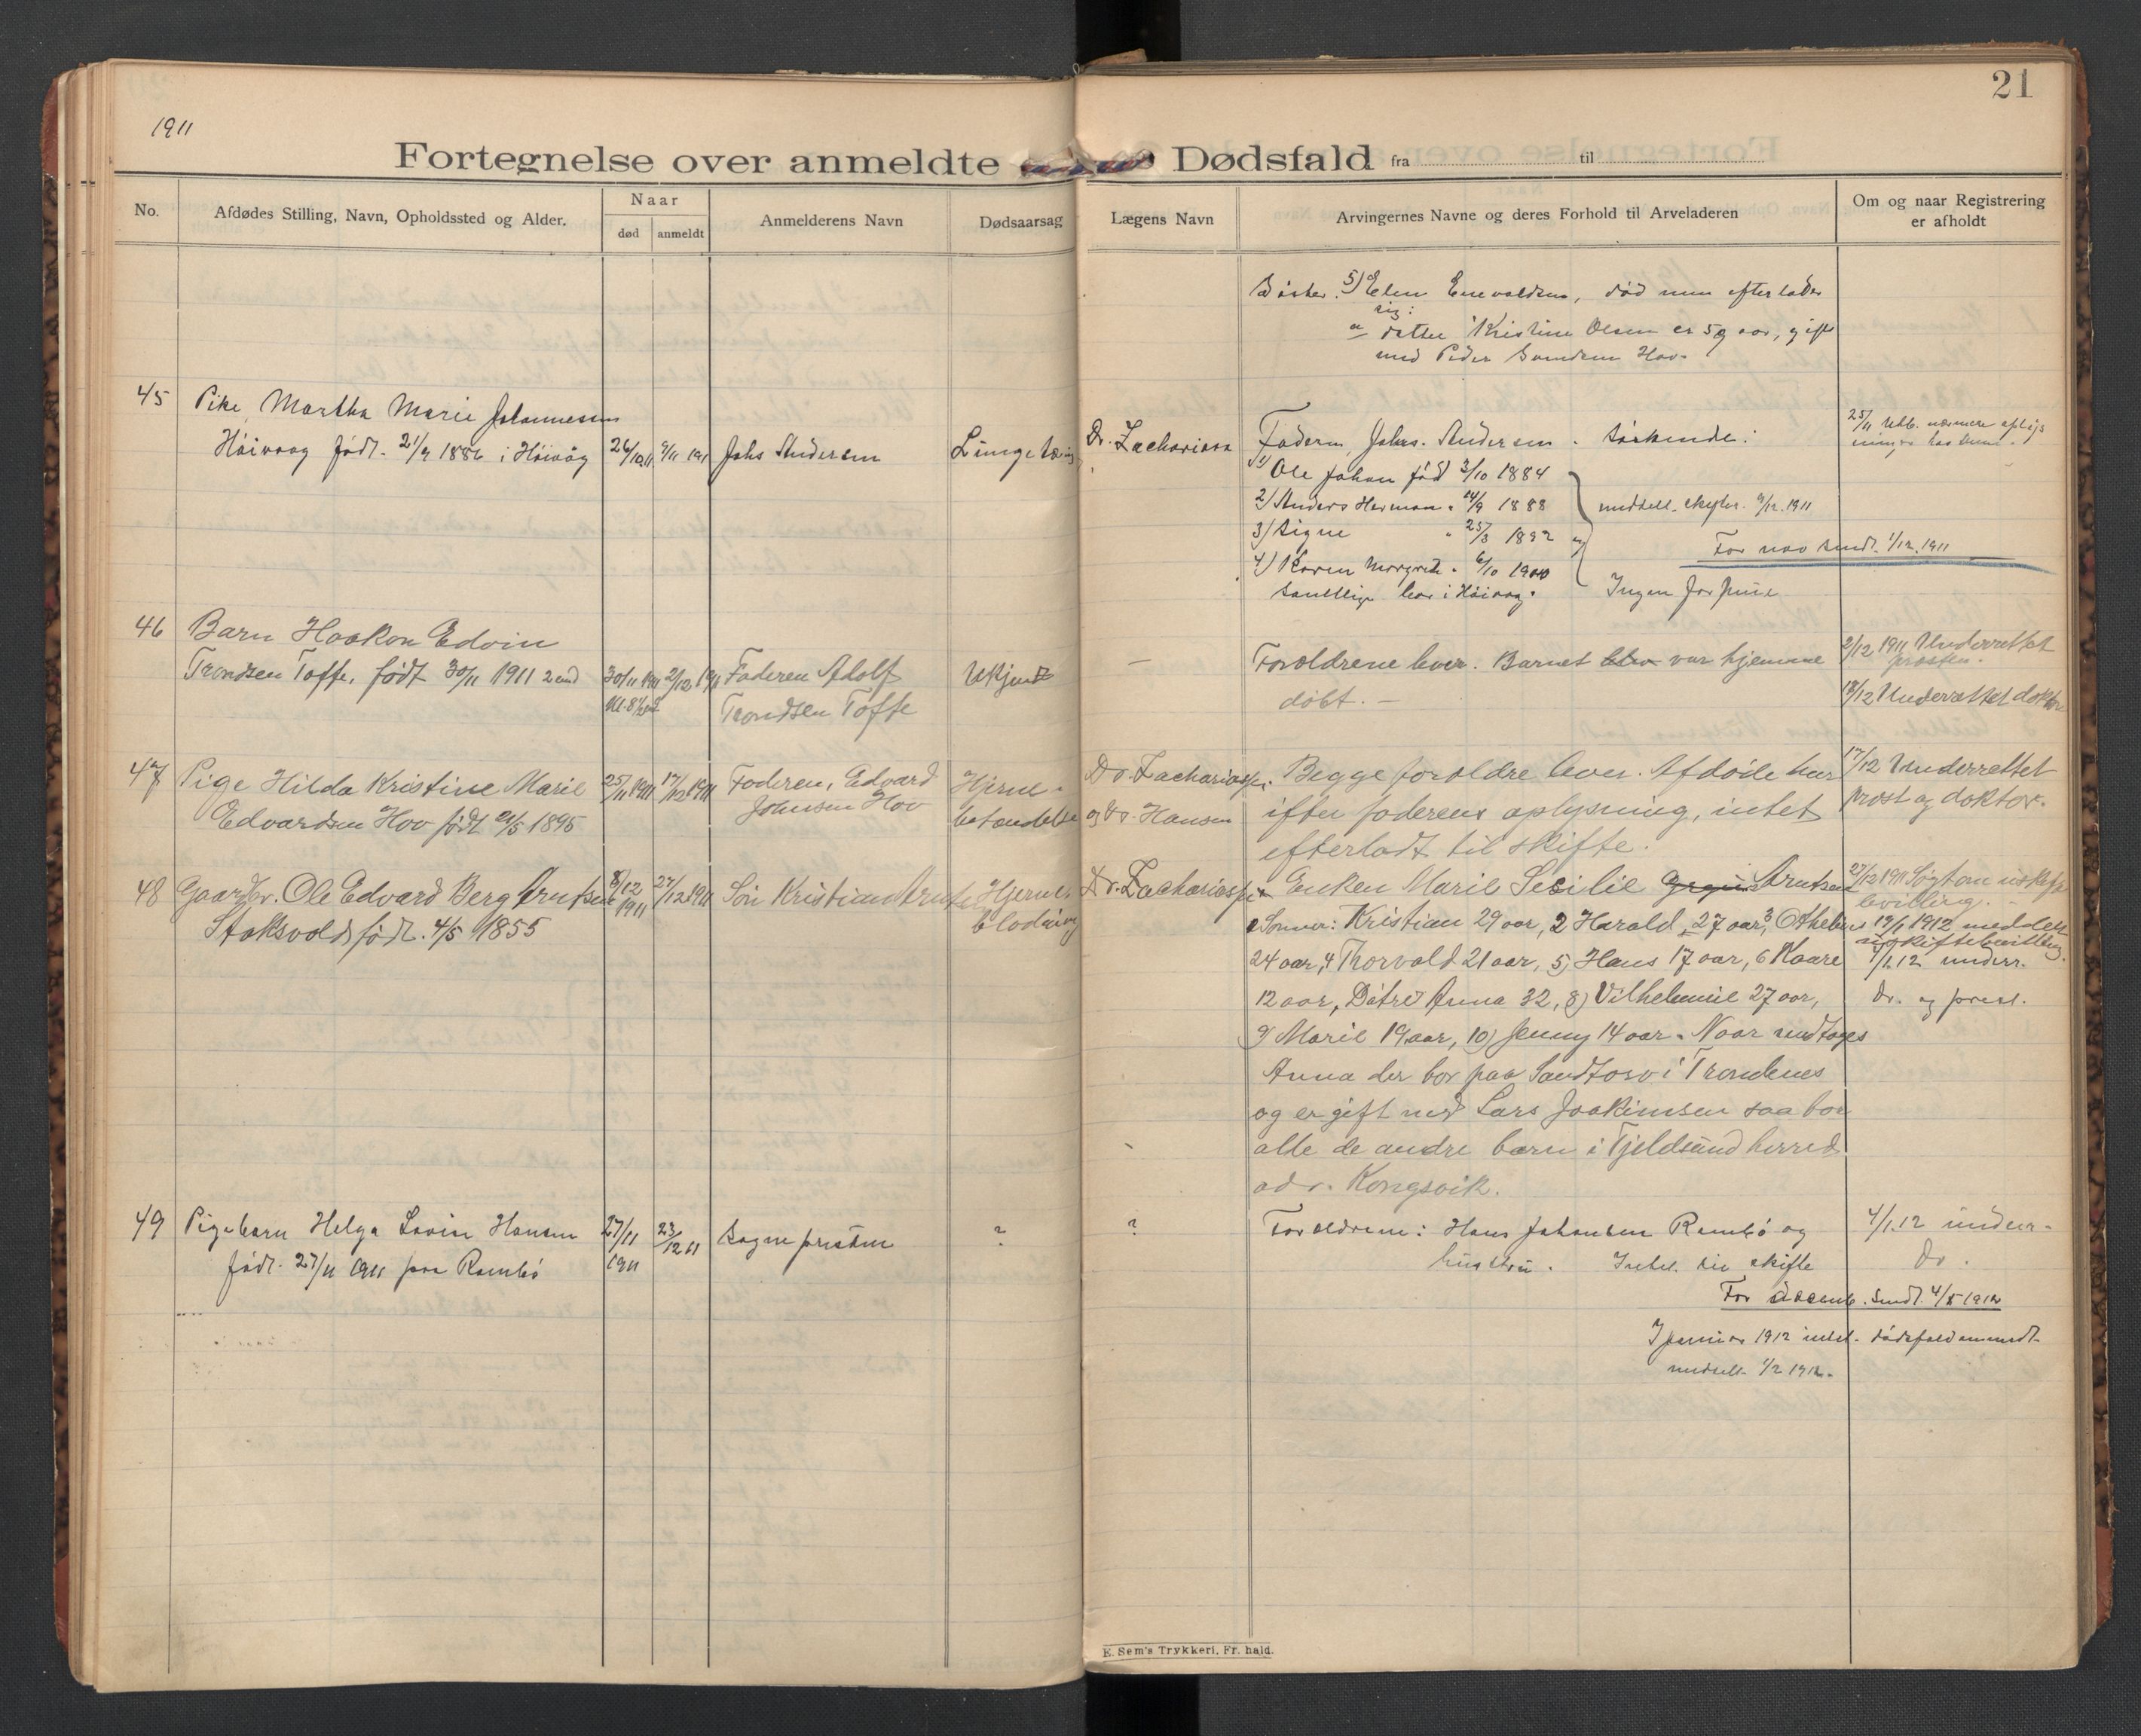 21
1911
Fortegnelse over anmeldte Dødsfald fra til
No.
Afdødes Stilling, Navn, Opholdssted og Alder.
Naar
død
anmeldt
Anmelderens Navn
Dødsaarsag
Lægens Navn
Arvingernes Navne og deres Forhold til Arveladeren
Om og naar Registrering
er afholdt
5) Elen Enevoldsen, død men efterlader
sig:
a datter Kristine Olsen er 59 aar, gift
med Peder Hov.
45 Pike Martha Marie Johannessen
Høivaag født. 21/9 1886 i Høivåg
26/10.11 9/11 1911
Johs Andersen
Dr. Zachariassen
Faderen, Johs. Andersen. Søskende:
1) Ole Johan född 3/10 1884
2) Anders Herman " 14/9 1888
3) Signe " 25/3 1892 og
4) Karen Margrete " 6/10 1900
samtlige bor i Høivaag.
meddelt 9/12.1911
For nov sendt. 1/12.1911
Ingen formue
25/11
46 Barn Haakon Edvin
Trondsen Toffe, født 30/11 1911
30/11 1911 2/12 1911
Faderen Adolf
Trondsen Toffe
Ukjendt
—
Forældrene lever. Barnet blev var hjemme
døbt. —
2/12 1911 Underrettet
presten.
18/12 Underrettet doktor
47 Pige Hilda Kristine Marie
Edvardsen Hov født 21/5 1895
25/11 1911 17/12 1911
Faderen, Edvard
Johnsen Hov
Hjerne-
betændelse
Dr. Zachariassen
og Dr. Hansen
Begge forældre lever. Afdøde har
ifter faderens oplysning, intet
efterladt til skifte.
17/12 Underrettet
prost og doktor.
48 Gaardbr. Ole Edvard Berg Arntsen
Stoksvold født. 4/5 1855
8/12 1911 27/12 1911
Søn Kristian Arntsen
Hjerne-
blødning
Dr. Zachariassen
Enken Marie Sesilie Arntsen
Sønner: Kristian 29 aar, 2 Harald, 27 aar, 3 Othelius
24 aar, 4 Thorvald 21 aar, 5) Hans 17 aar, 6 Kaare
12 aar, Døtre Anna 32, 8) Vilhelmine 27 aar,
9) Marie 19 aar, 10) Jenny 14 aar. Naar undtages
Anna der bor paa Sandtorv i Trondenes
og er gift med Lars Joakimsen saa bor
alle de andre barn i Tjeldsund herred
adr. Kongsvik.
27/12 1911 Søgt om uskifte
bevilling.
19/1 1912 meddelt
uskiftebevilling.
4/1.12 underr.
Dr. og prest.
49 Pigebarn Helga Lovise Hansen
født. 27/11 1911 paa Rambø
27/11 1911
23/12 11
Sognepresten
?
?
Forældrene: Hans Johansen Rambø og
hustru. Intet til skifte
4/1.12 underr.
Dr.
For decemb. sendt. 4/1 1912
I januar 1912 intet dødsfald anmeldt.
meddelt 1/2 1912.
E. Sem's Trykkeri, Fr. hald.